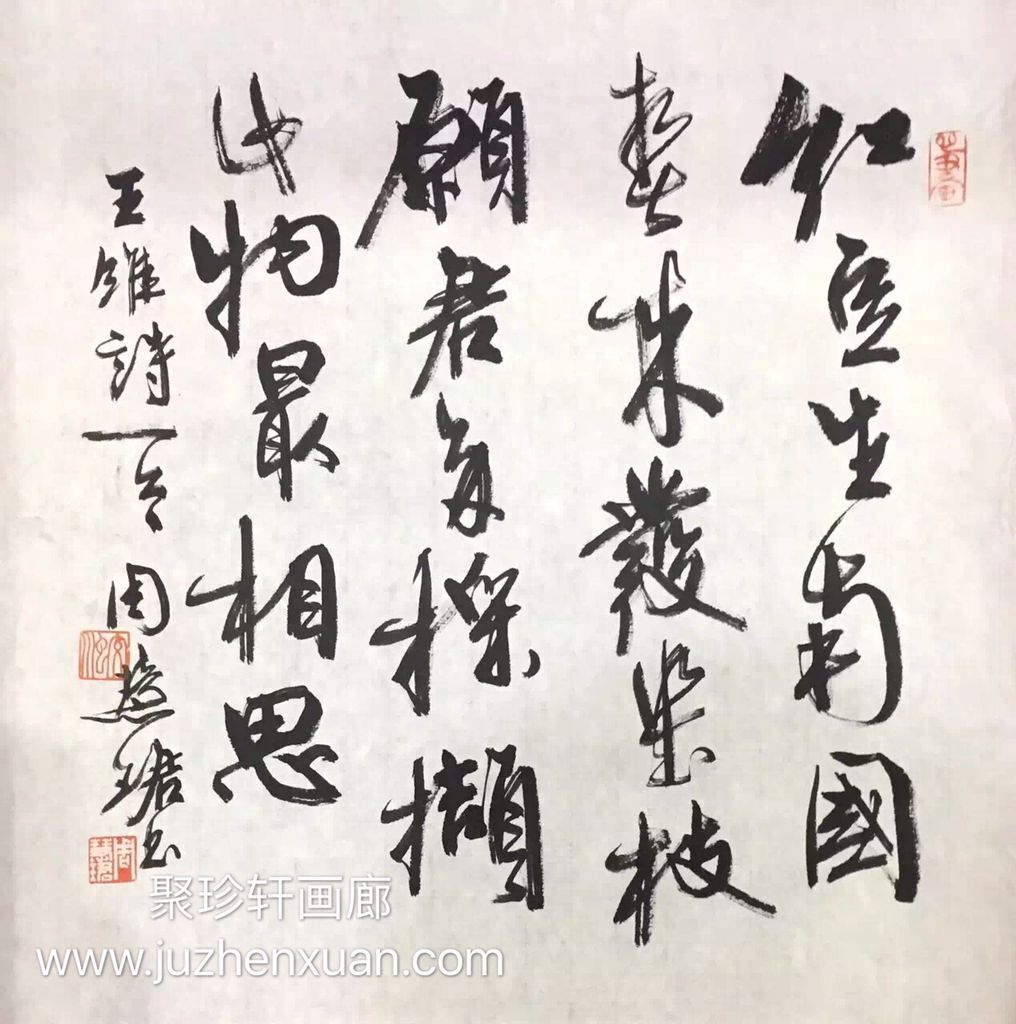 紅豆生南國
春来發幾枝
願君多採擷
此物最相思
王維詩一首 周慧珺书
周慧珺
聚珍轩画廊
www.juzhenxuan.com